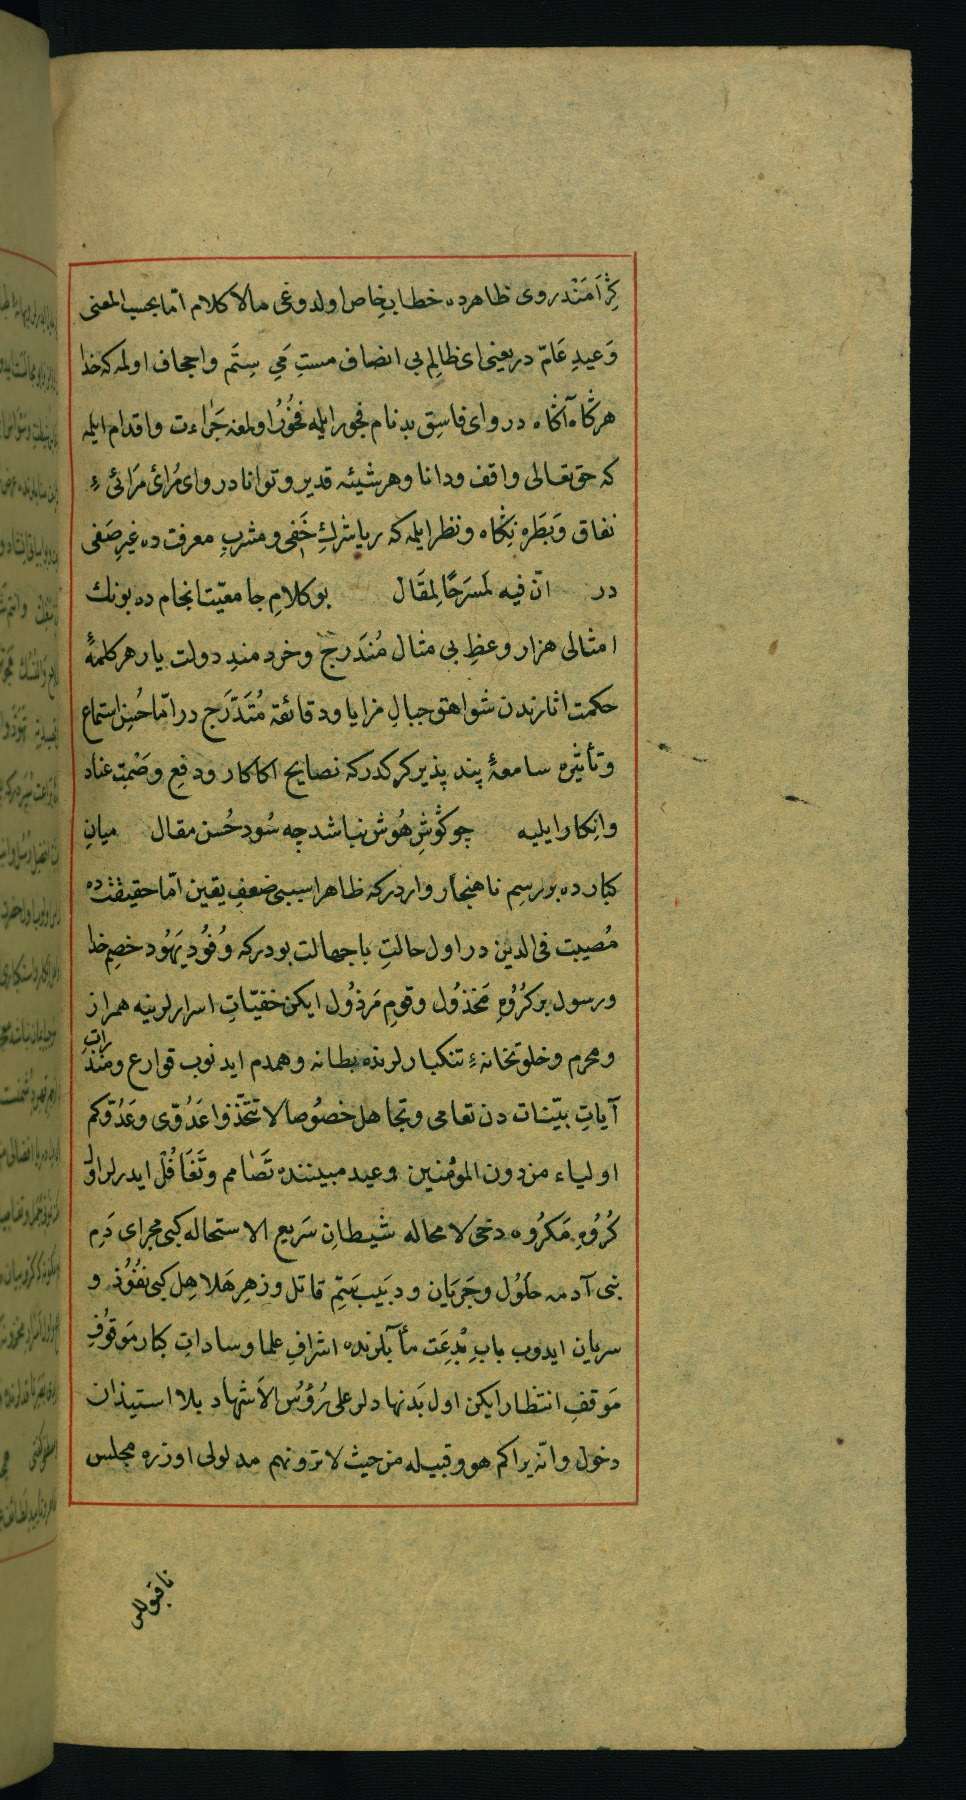 كرامَنْدر وى ظاهرده خطابِ خاص اولدوغى مالاً كلام امّا بحسب المعنى
وَعيدِ عَامّ در يعنى اى ظالمِ بى انصاف مستِ مَىِ سِتَم واجحاف اولمه كه خدا
هرگاه آگاه در واى فاسِقِ بدنام فجور ايله فخُورُ اولمغه جَراءت واقدام ايلمه
كه حق تعالى واقف ودانا وهر شيئه قدير وتوانا در واى مُرائ مَرائئ ءِ
نفاق وَبَطَره نِگاه ونظر ايلمه كه ريا شركِ خَفى ومشربِ معرفت ده غيرِ صَفى
در انّ فيه لَمسَرحًا لِمَقَالْ بو كلامِ جامعيّت انجام ده بونك
امثالى هزار وعظِ بى مثال مُندَرج وخرد مندِ دولت يار هر كلمهٔ
حكمت اثارندن شواهق جبالِ مزايا ودقائقه مُتَدَرّج در امّا حُسنِ استماع
وتأثيره سامعهٔ پند پذير كركدركه نصايح اكا كار ودفعِ وصْمتِ عناد
وانكار ايليه چو گوشِ هُوش نباشد چه سُود حُسن مقال ميانِ
كبارده بر رسمِ ناهنجار واردركه ظاهرا سببى ضعفِ يقين امّا حقيقتده
مُصيبت فى الدين در اول حالتِ باجهالت بودركه وُفُودِ يَهُود خصمِ خدا
ورسول بر كرُوهِ مَخذوُل وقومِ مَرذوُل ايكن خفيّاتِ اسرارلرينه همراز
ومحرم وخلوتخانهٔ تنكبارلرنده بطانه وهمدم ايدنوب قوارع ومنذرات
آياتِ بيّنات دن تعامى وتجاهل خصُوصا لا تتّخذوا عَدُوّى وَعَدُوّكم
اولياء من دون المؤمنين وعيد مبيننده تَصَامم وتَغَافُلْ ايدرلر اول
كُرُوهِ مَكرُوه دخى لا محاله شيطانِ سَريع الاستحاله كبى مجراى دَمِ
بنى آدمه حلُول وجَرَيَان ودبَيب سَتِمِ قاتل وزهرِ هَلاهِل كبى نفُوُذ و
سريان ايدوب بابِ بُدعَت مأبلرنده اشرافِ علما وساداتِ كبار مَوقُوفِ
مَوقفِ انتظار ايكن اول بَدنهادلر على رُؤُسِ الاَشهاد بلا استيذان
دخول وانّه يراكم هو وقبيله من حيث لا ترونهم مدلولى اوزره مجلس
ناقبوللر